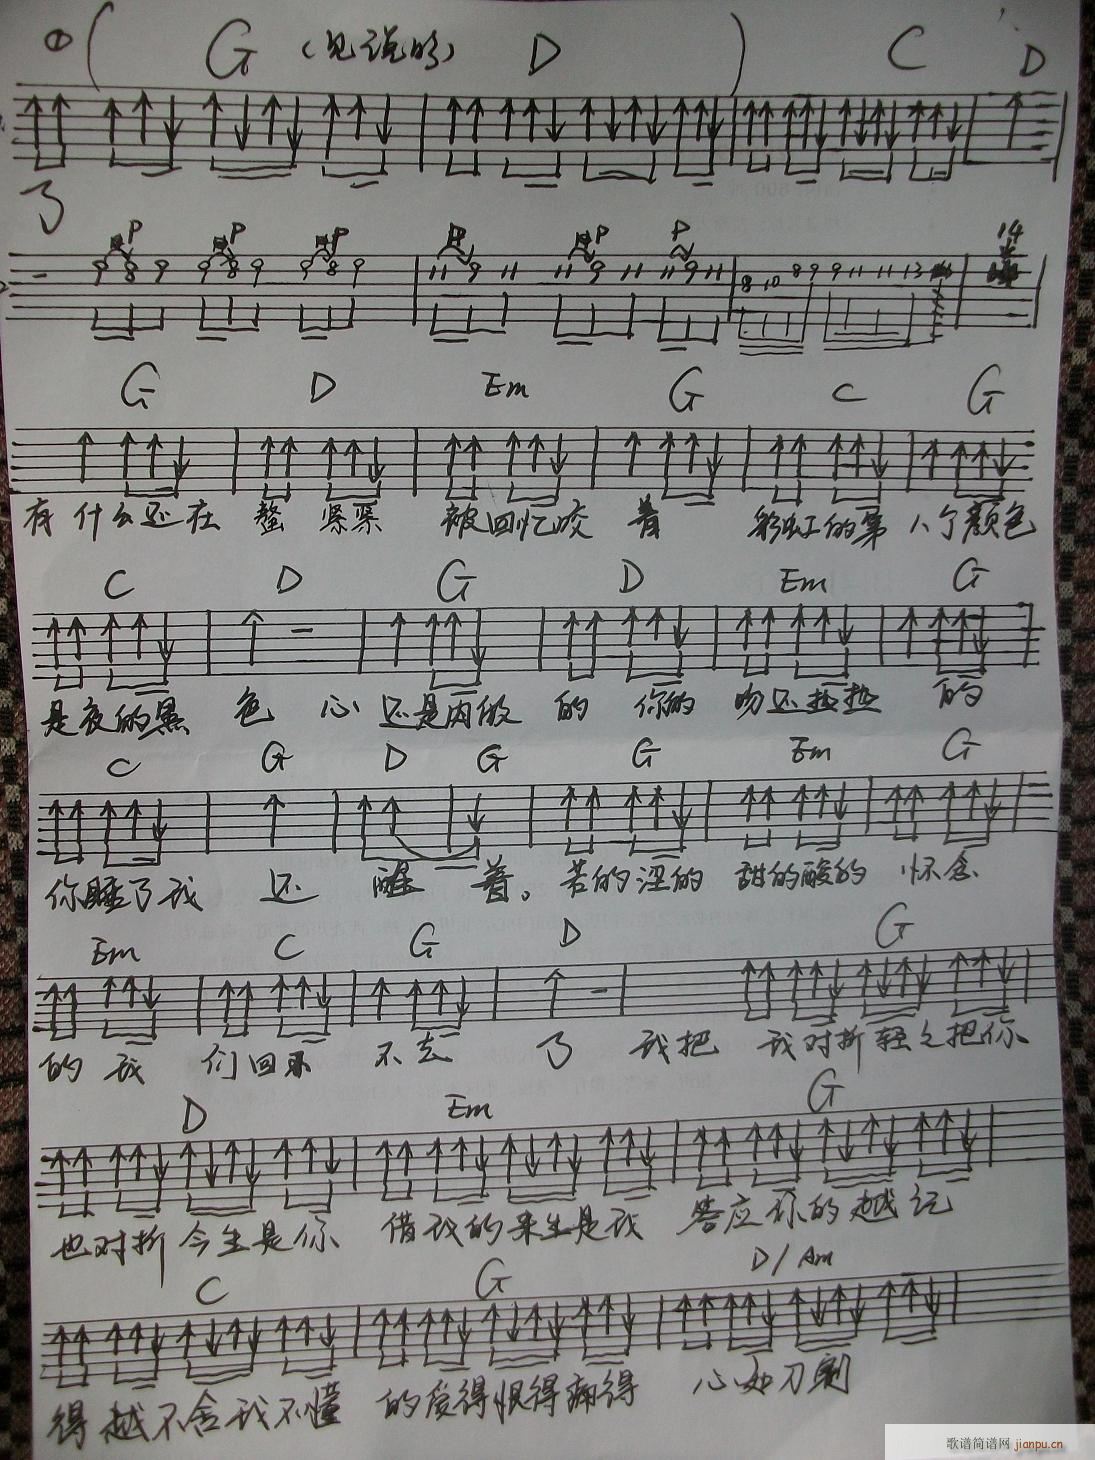 ① ( G (见说明) D ) C D
了
P P P P P P 14
9 8 9 9 8 9 9 8 9 11 9 11 11 9 11 11 9 11 8 10 8 9 9 11 11 13
G D Em G C G
有什么还在 螯 紧紧 被回忆咬 着 彩虹的第 八个颜色
C D G D Em G
是夜的黑 色 心 还是肉做 的 你的 吻还热热 的
C G D G G Em G
你睡了我 还 醒 着。苦的涩的 甜的酸的 怀念
Em C G D G
的 我 们回 不去 了 我把 我对折轻轻把你
D Em G
也对折 今生是你 借我的来生是我 答应你的越记
C G D/Am
得越不舍我不懂 的爱得恨得痛得 心如刀割
歌谱简谱网 jianpu.cn